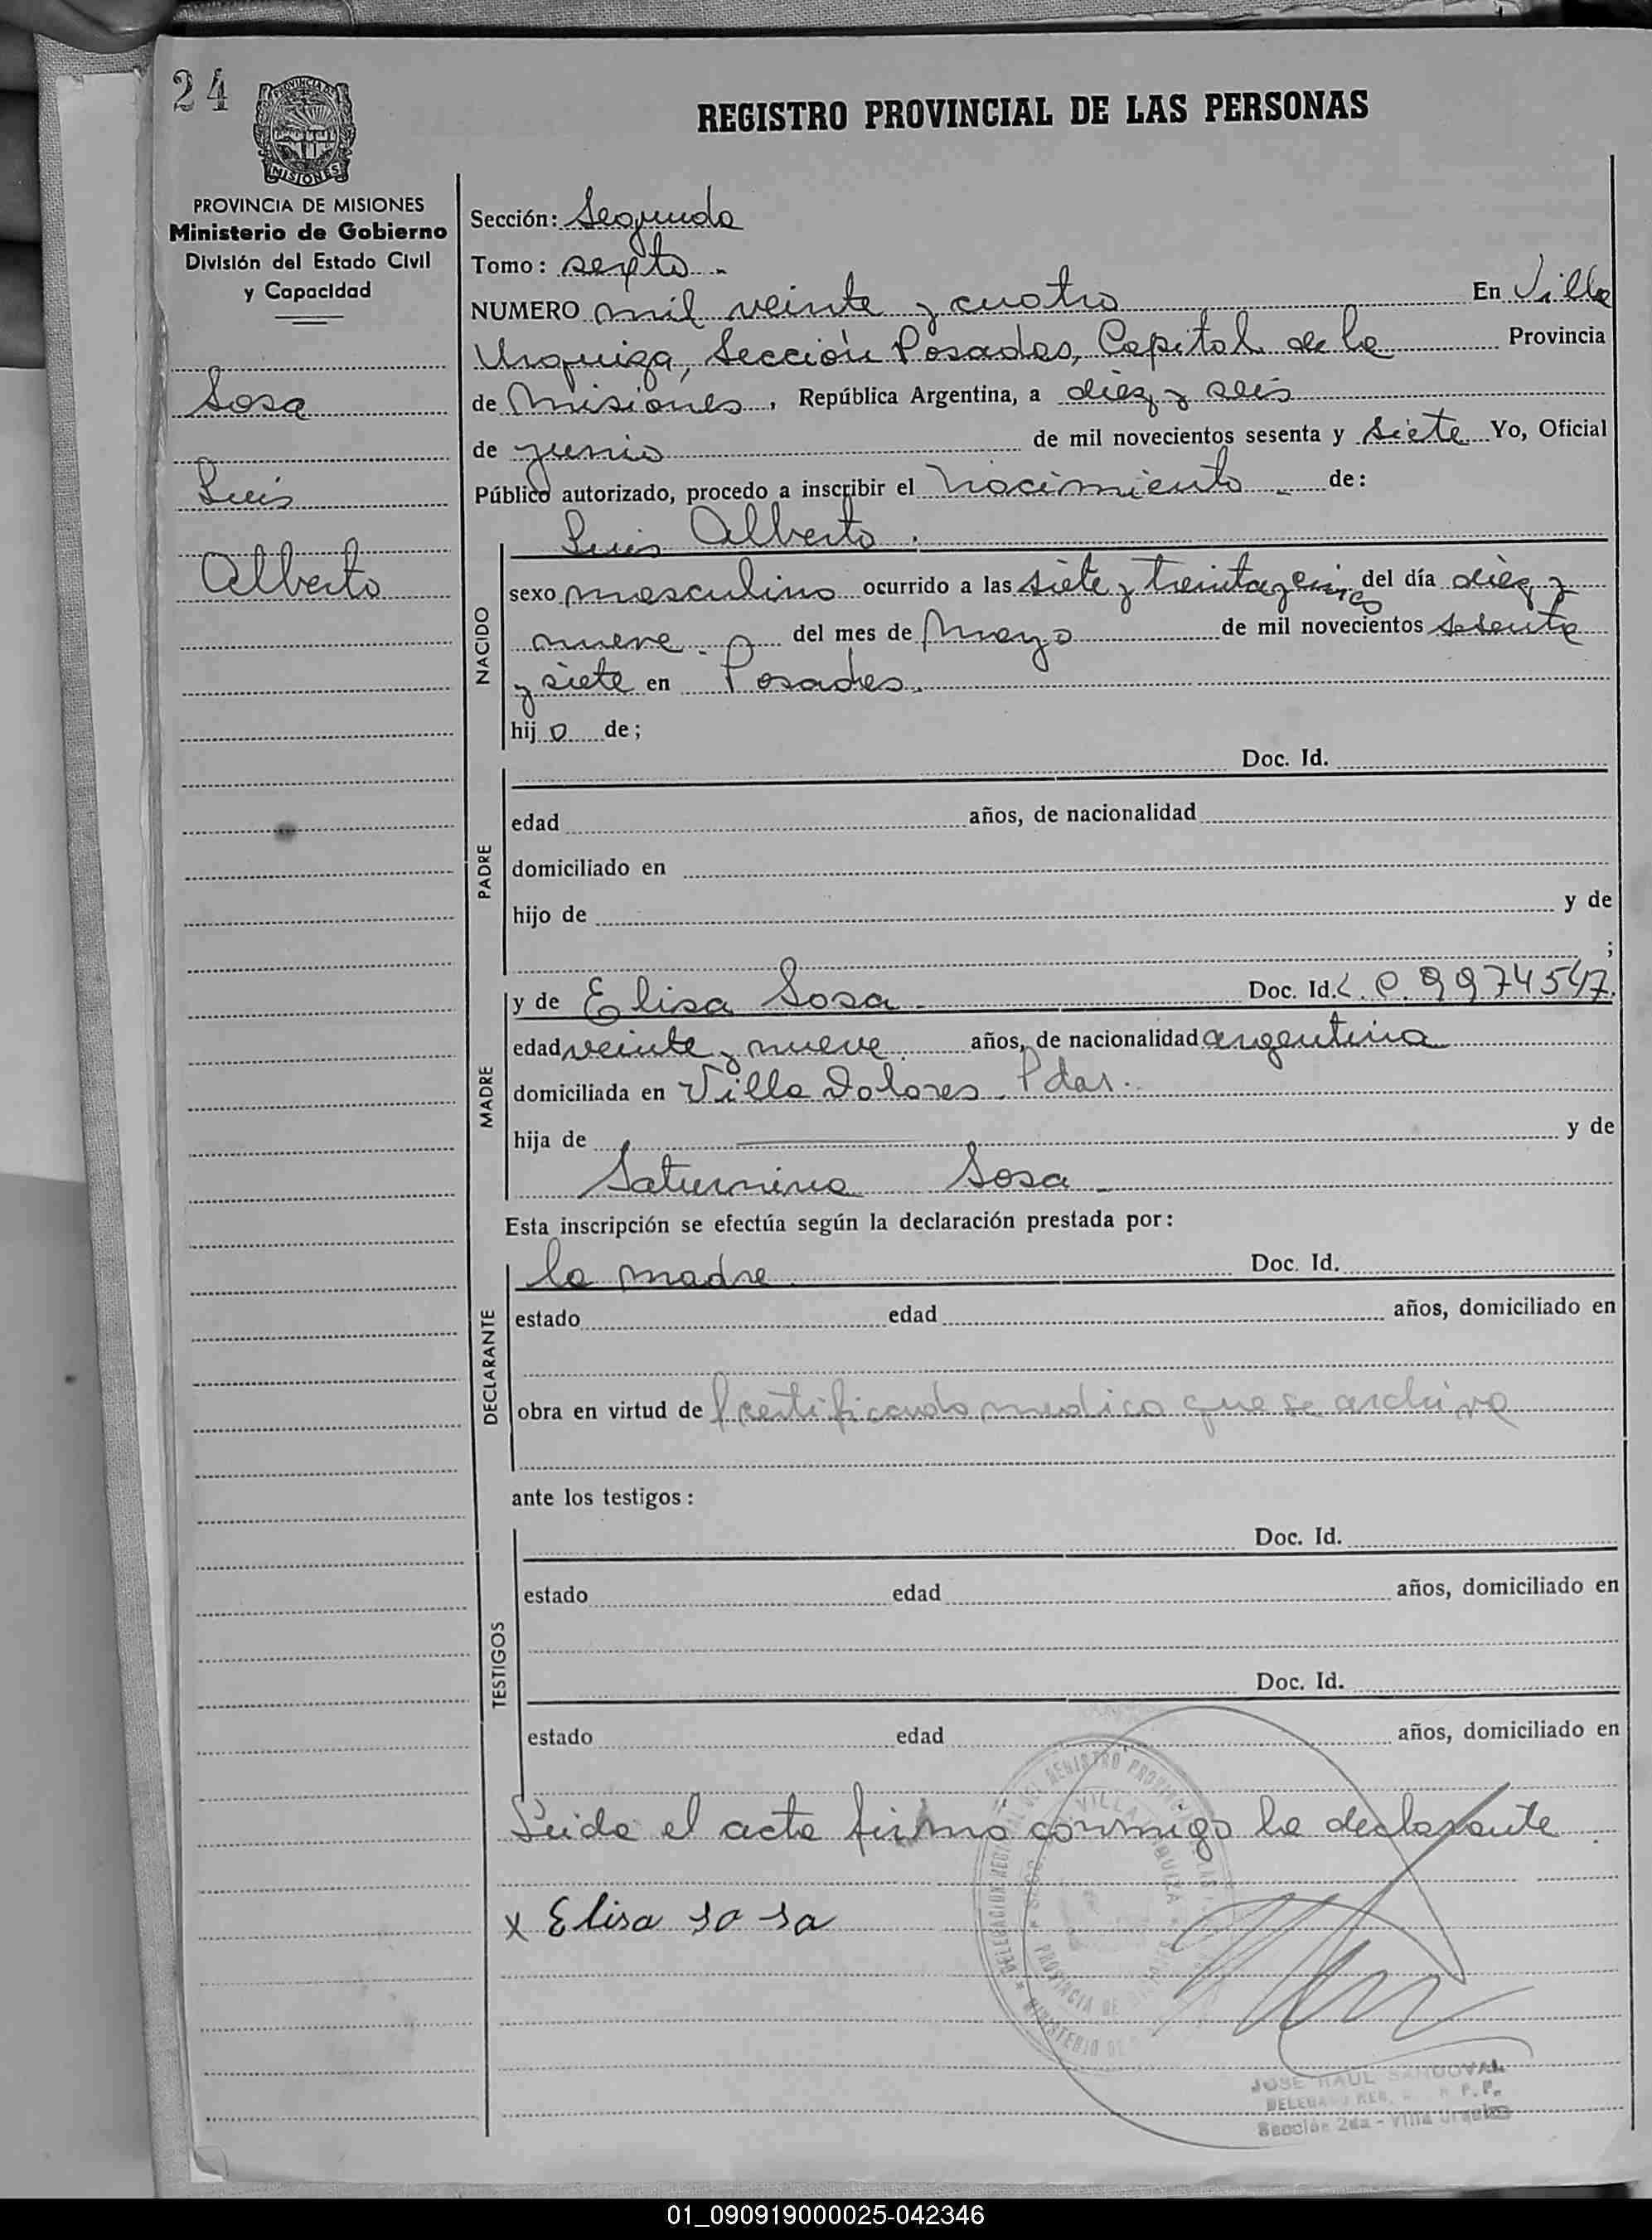 24
PROVINCIA DE
MISIONES
REGISTRO PROVINCIAL DE LAS PERSONAS
PROVINCIA DE MISIONES
Ministerio de Gobierno
División del Estado Civil
y Capacidad
Sosa
Luis
Alberto
Sección: Segunda
Tomo: sexto
NUMERO mil veinte y cuatro En Villa
Urquiza, Sección Posadas, Capital de la Provincia
de Misiones, República Argentina, a diez y seis
de junio de mil novecientos sesenta y siete Yo, Oficial
Público autorizado, procedo a inscribir el nacimiento de:
Luis Alberto.
NACIDO
sexo masculino ocurrido a las siete y treinta y cinco del día diez y
nueve del mes de Mayo de mil novecientos sesenta
y siete en Posadas.
hijo de;
PADRE
Doc. Id.
edad años, de nacionalidad
domiciliado en
hijo de y de
;
MADRE
y de Elisa Sosa Doc. Id. L.C. 9974547.
edad veinte y nueve años, de nacionalidad argentina
domiciliada en Villa Dolores. Pdas.
hija de y de
Saturnina Sosa
Esta inscripción se efectúa según la declaración prestada por:
DECLARANTE
la madre Doc. Id.
estado edad años, domiciliado en
obra en virtud de certificando medico que se archiva
ante los testigos:
TESTIGOS
Doc. Id.
estado edad años, domiciliado en
Doc. Id.
estado edad años, domiciliado en
Leida el acta firma conmigo la declarante
x Elisa sosa
JOSE RAUL SANDOVAL
Sección 2da - Villa Urquiza
01_090919000025-042346